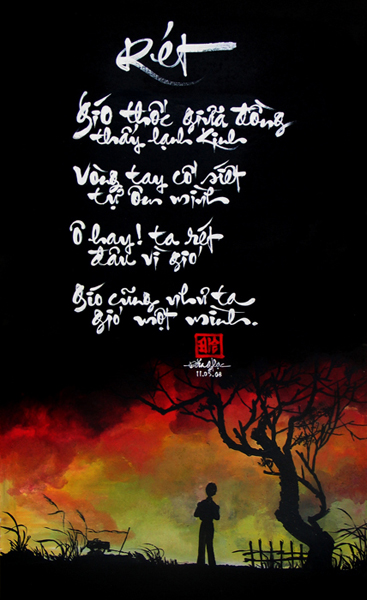 Rét
Gió thốc giữa đồng
thấy lạnh kinh
Vòng tay cố siết
tự ôm mình
Ô hay! ta rét
đâu vì gió
Gió cũng như ta
gió một mình.
11.05.08